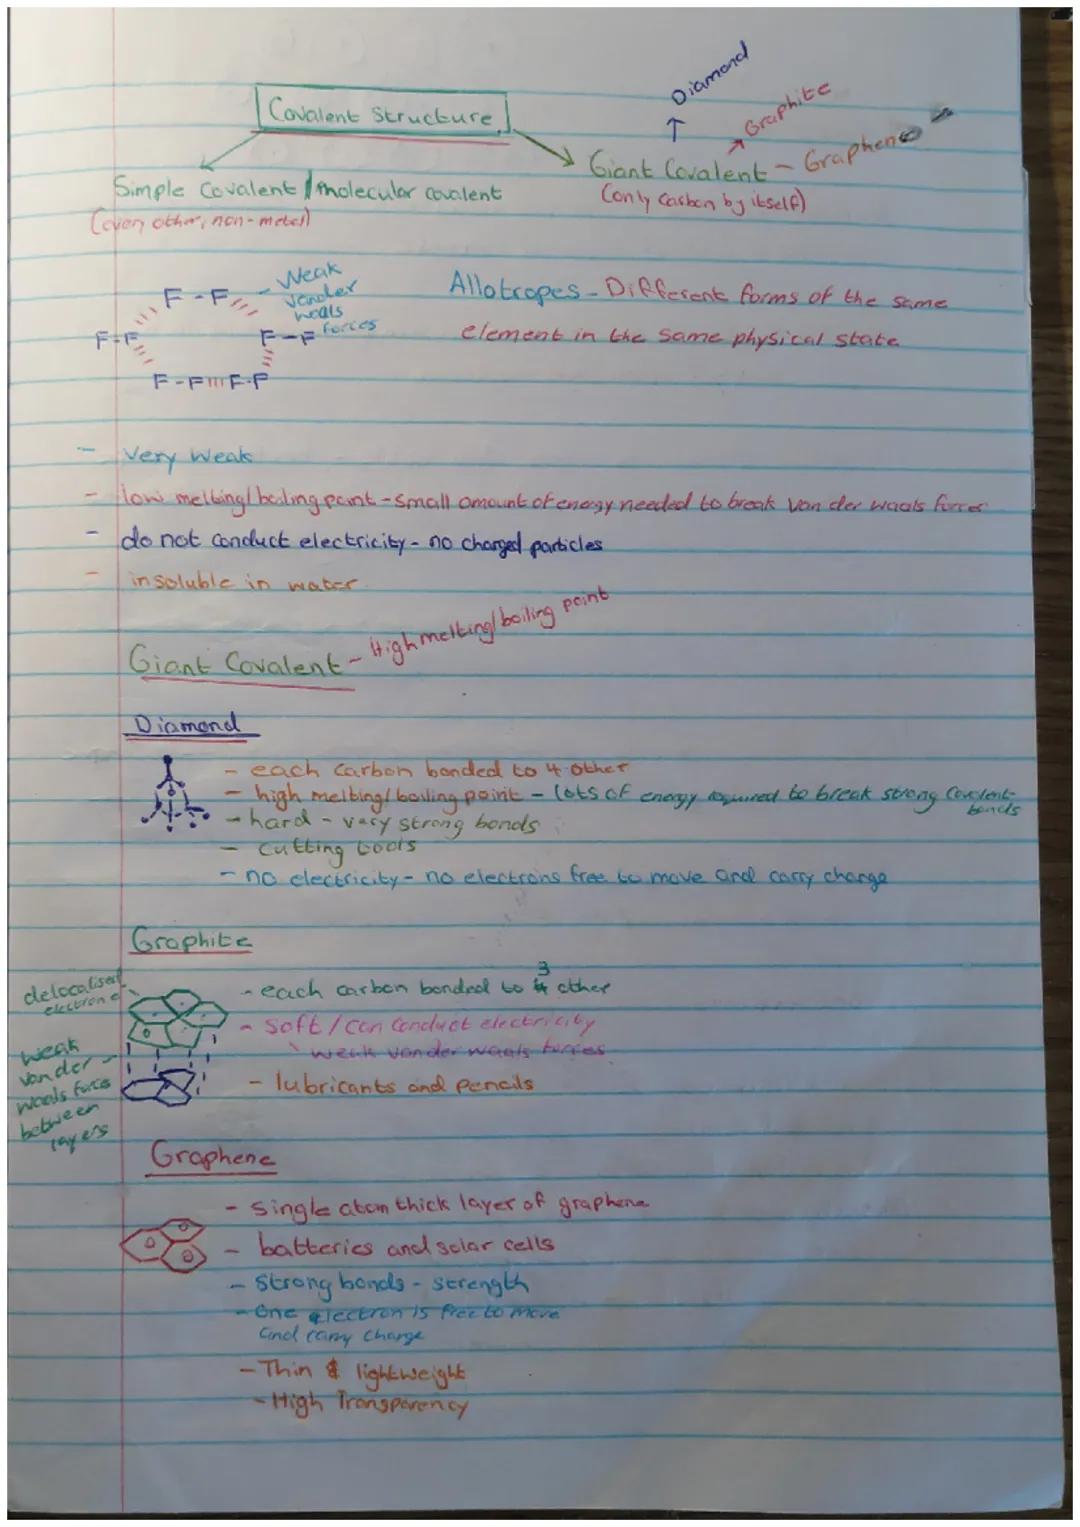 Covalent Structure
Diamond
Graphite
Giant Covalent - Graphene
(only Carbon by itself)
Simple Covalent / Molecular covalent
(every other, non-metal)
F-F
Weak
Vander
waals
forces
F-F
F-F
F-F F-F
Allotropes - Different forms of the same
element in the same physical state
- Very weak
- low melting/boiling point - small amount of energy needed to break van der waals forces
- do not conduct electricity - no charged particles
- insoluble in water
Giant Covalent - High melting/boiling point
Diamond
- each carbon bonded to 4 other
- high melting/boiling point - lots of energy required to break strong Covalent
bonds
- hard - very strong bonds
- Cutting tools
- no electricity - no electrons free to move and carry charge
Graphite
delocalised
electrons
weak
van der
waals forces
between
layers
3
- each carbon bonded to 4 other
- Soft / Can Conduct electricity
weak vander waals forces
- lubricants and pencils
Graphene
- Single atom thick layer of graphene
- batteries and solar cells
- Strong bonds - strength
- One electron is free to move
and carry charge
- Thin & lightweight
- High Transparency